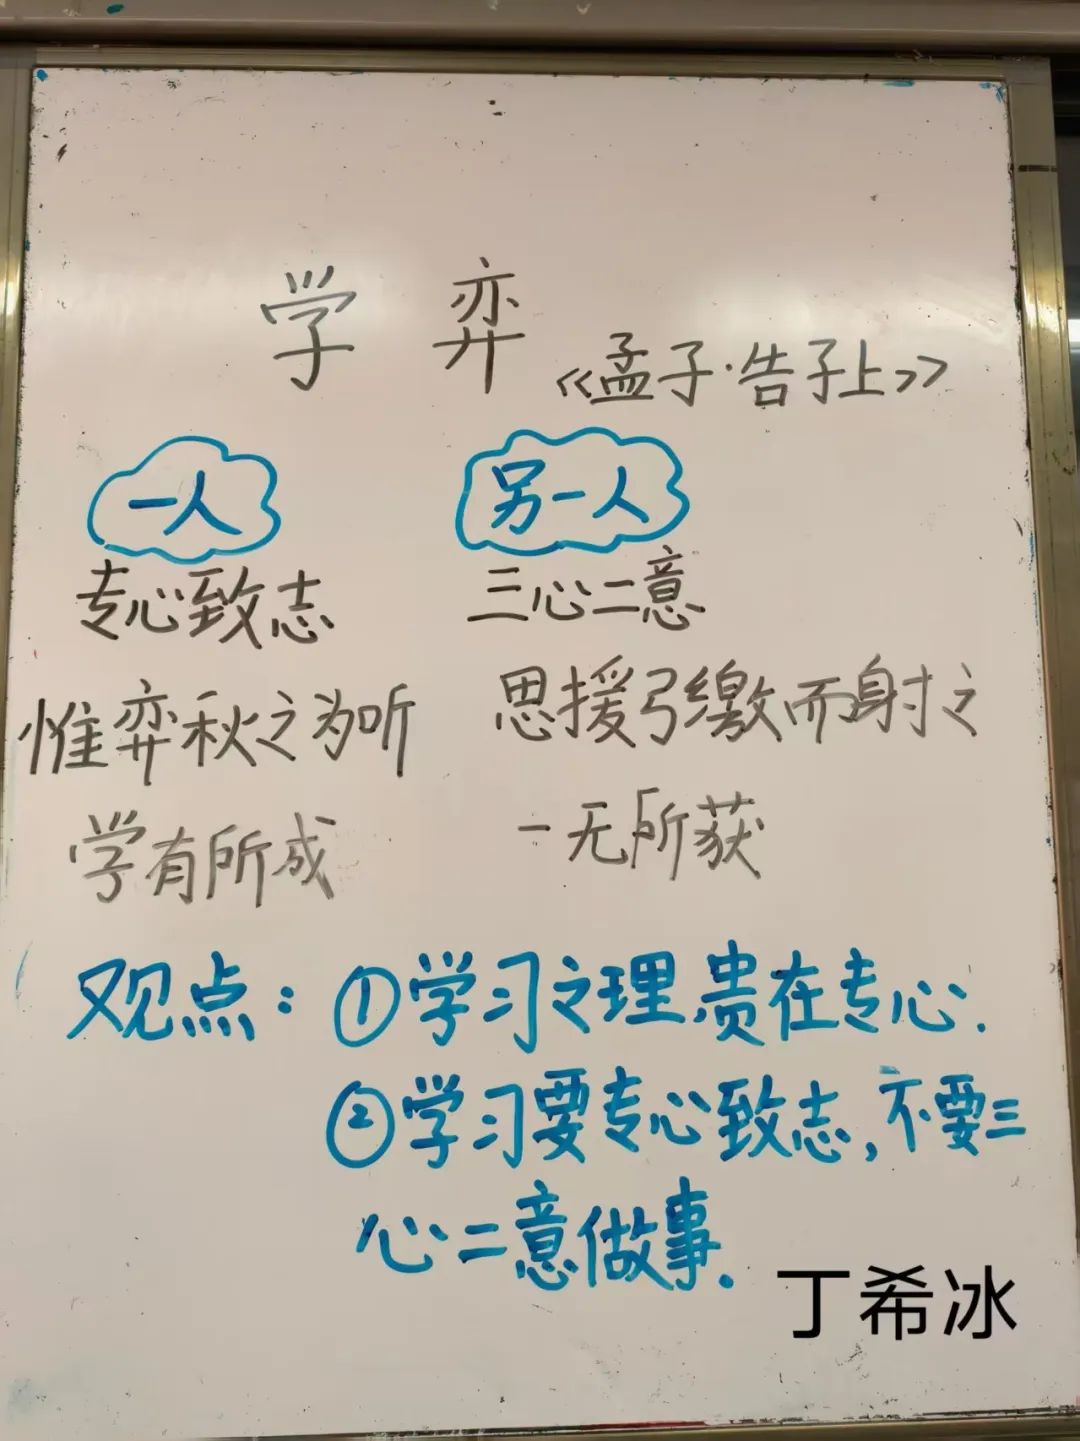 学 弈
《孟子·告子上》
一人 另一人
专心致志 三心二意
惟弈秋之为听 思援弓缴而射之
学有所成 一无所获
观点：①学习之理,贵在专心.
②学习要专心致志,不要三
心二意做事.
丁希冰